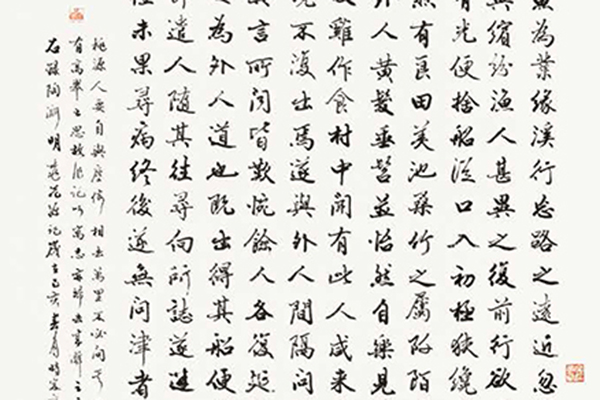 為業緣溪行忘路之遠近忽
英繽紛漁人甚異之復前行欲
有光便捨船從口入初極狹纔
然有良田美池桑竹之屬阡陌
外人黃髮垂髫並怡然自樂見
雞作食村中聞有此人咸來
境不復出焉遂與外人間隔問
言所聞皆歎惋餘人各復延
為外人道也既出得其船便
即遣人隨其往尋向所誌遂迷
往未果尋病終後遂無問津者
桃源人要自與塵俗相去萬里不必問其
有高舉之思故作記以寓志亦歸去來辭之
右錄陶淵明桃花源記歲在己亥春月時